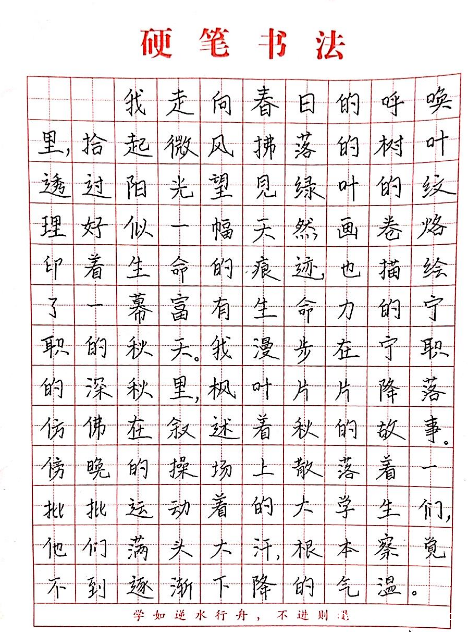 硬笔书法
我走向春日的呼唤
里,拾起微风拂落的树叶
透过阳光望见绿叶的纹
理好似一幅天然画卷烙
印着生命的痕迹,也描绘
了一幕富有生命力的宁
职的秋天。我漫步在宁职
的深秋里,枫叶片片降落
仿佛在叙述着秋的故事。
傍晚的操场上散落着一
批批运动着的大学生们,
他们满头大汗,根本察觉
不到逐渐下降的气温。
学如逆水行舟，不进则退